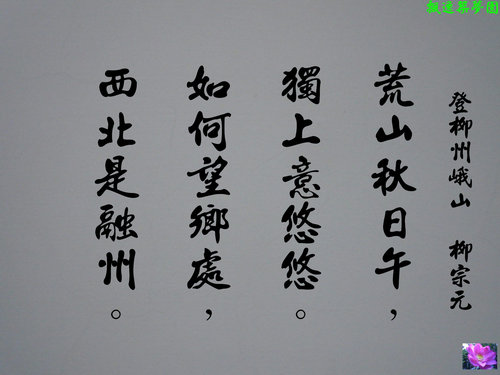 楓逸築夢園
登柳州峨山　柳宗元
荒山秋日午，
獨上意悠悠。
如何望鄉處，
西北是融州。